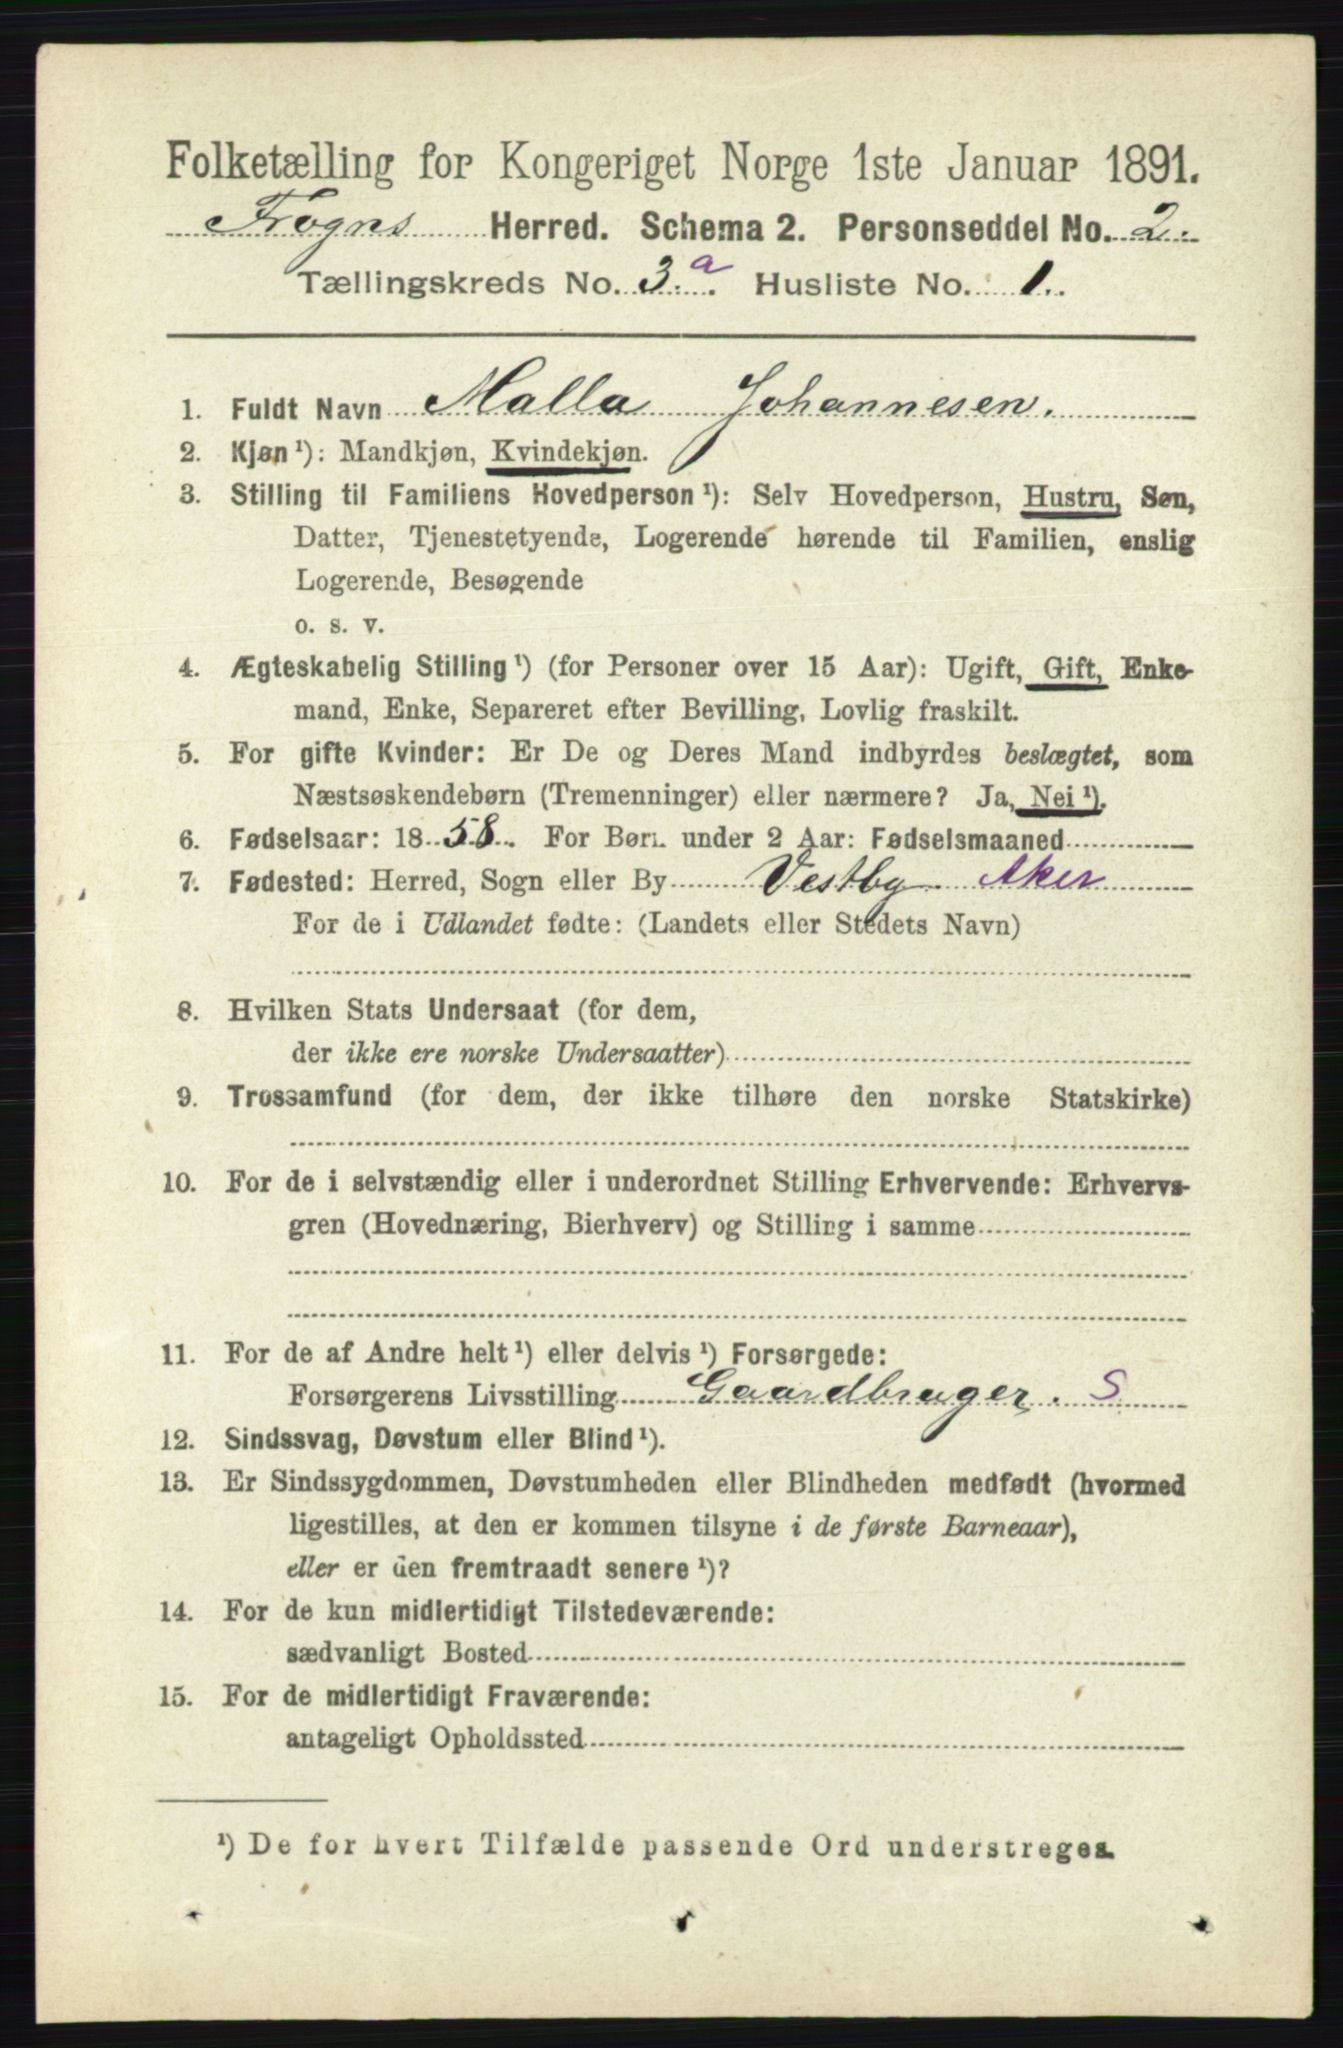 Folketælling for Kongeriget Norge 1ste Januar 1891.
Frogns Herred. Schema 2. Personseddel No. 2.
Tællingskreds No. 3.a. Husliste No. 1.
1. Fuldt Navn Malla Johannesen.
2. Kjøn ¹): Mandkjøn, Kvindekjøn.
3. Stilling til Familiens Hovedperson ¹): Selv Hovedperson, Hustru, Søn,
Datter, Tjenestetyende, Logerende hørende til Familien, enslig
Logerende, Besøgende
o. s. v.
4. Ægteskabelig Stilling ¹) (for Personer over 15 Aar): Ugift, Gift, Enke-
mand, Enke, Separeret efter Bevilling, Lovlig fraskilt.
5. For gifte Kvinder: Er De og Deres Mand indbyrdes beslægtet, som
Næstsøskendebørn (Tremenninger) eller nærmere? Ja, Nei ¹).
6. Fødselsaar: 1858. For Børn under 2 Aar: Fødselsmaaned
7. Fødested: Herred, Sogn eller By Vestby Aker
For de i Udlandet fødte: (Landets eller Stedets Navn)
8. Hvilken Stats Undersaat (for dem,
der ikke ere norske Undersaatter)
9. Trossamfund (for dem, der ikke tilhøre den norske Statskirke)
10. For de i selvstændig eller i underordnet Stilling Erhvervende: Erhvervs-
gren (Hovednæring, Bierhverv) og Stilling i samme
11. For de af Andre helt ¹) eller delvis ¹) Forsørgede:
Forsørgerens Livsstilling Gaardbruger. S
12. Sindssvag, Døvstum eller Blind ¹).
13. Er Sindssygdommen, Døvstumheden eller Blindheden medfødt (hvormed
ligestilles, at den er kommen tilsyne i de første Barneaar),
eller er den fremtraadt senere ¹)?
14. For de kun midlertidigt Tilstedeværende:
sædvanligt Bosted
15. For de midlertidigt Fraværende:
antageligt Opholdssted
¹) De for hvert Tilfælde passende Ord understreges.